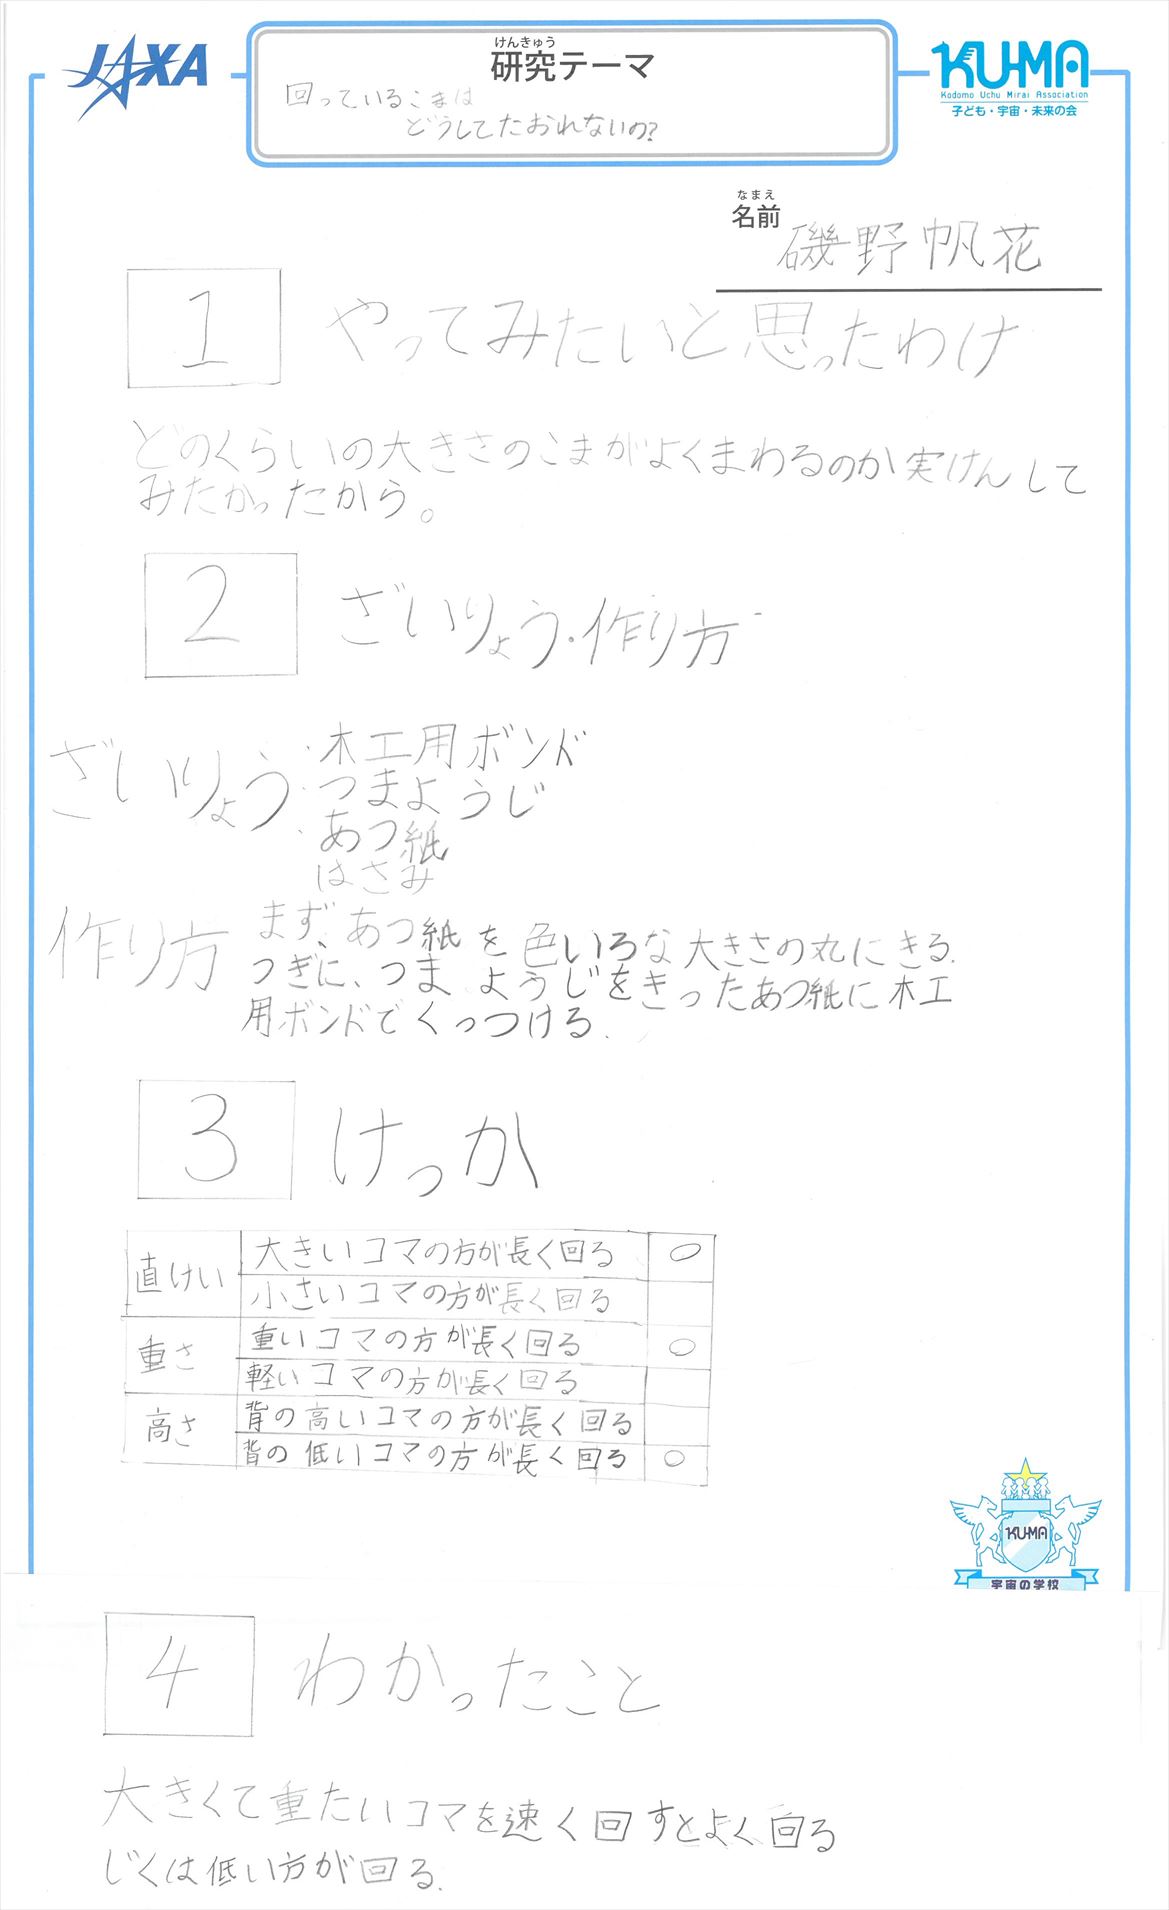 JAXA
けんきゅう
研究テーマ
回っているこまは
どうしてたおれないの?
KU-MA
Kodomo Uchu Mirai Association
子ども・宇宙・未来の会
なまえ
名前
磯野帆花
1 やってみたいと思ったわけ
どのくらいの大きさのこまがよくまわるのか実けんして
みたかったから。
2 ざいりょう・作り方
ざいりょう 木工用ボンド
つまようじ
あつ紙
はさみ
作り方 まず、あつ紙を色いろな大きさの丸にきる.
つぎに、つまようじをきったあつ紙に木工
用ボンドでくっつける.
3 けっか
直けい 大きいコマの方が長く回る ○
小さいコマの方が長く回る
重さ 重いコマの方が長く回る ○
軽いコマの方が長く回る
高さ 背の高いコマの方が長く回る
背の低いコマの方が長く回る ○
KU-MA
宇宙の学校
4 わかったこと
大きくて重たいコマを速く回すとよく回る
じくは低い方が回る.